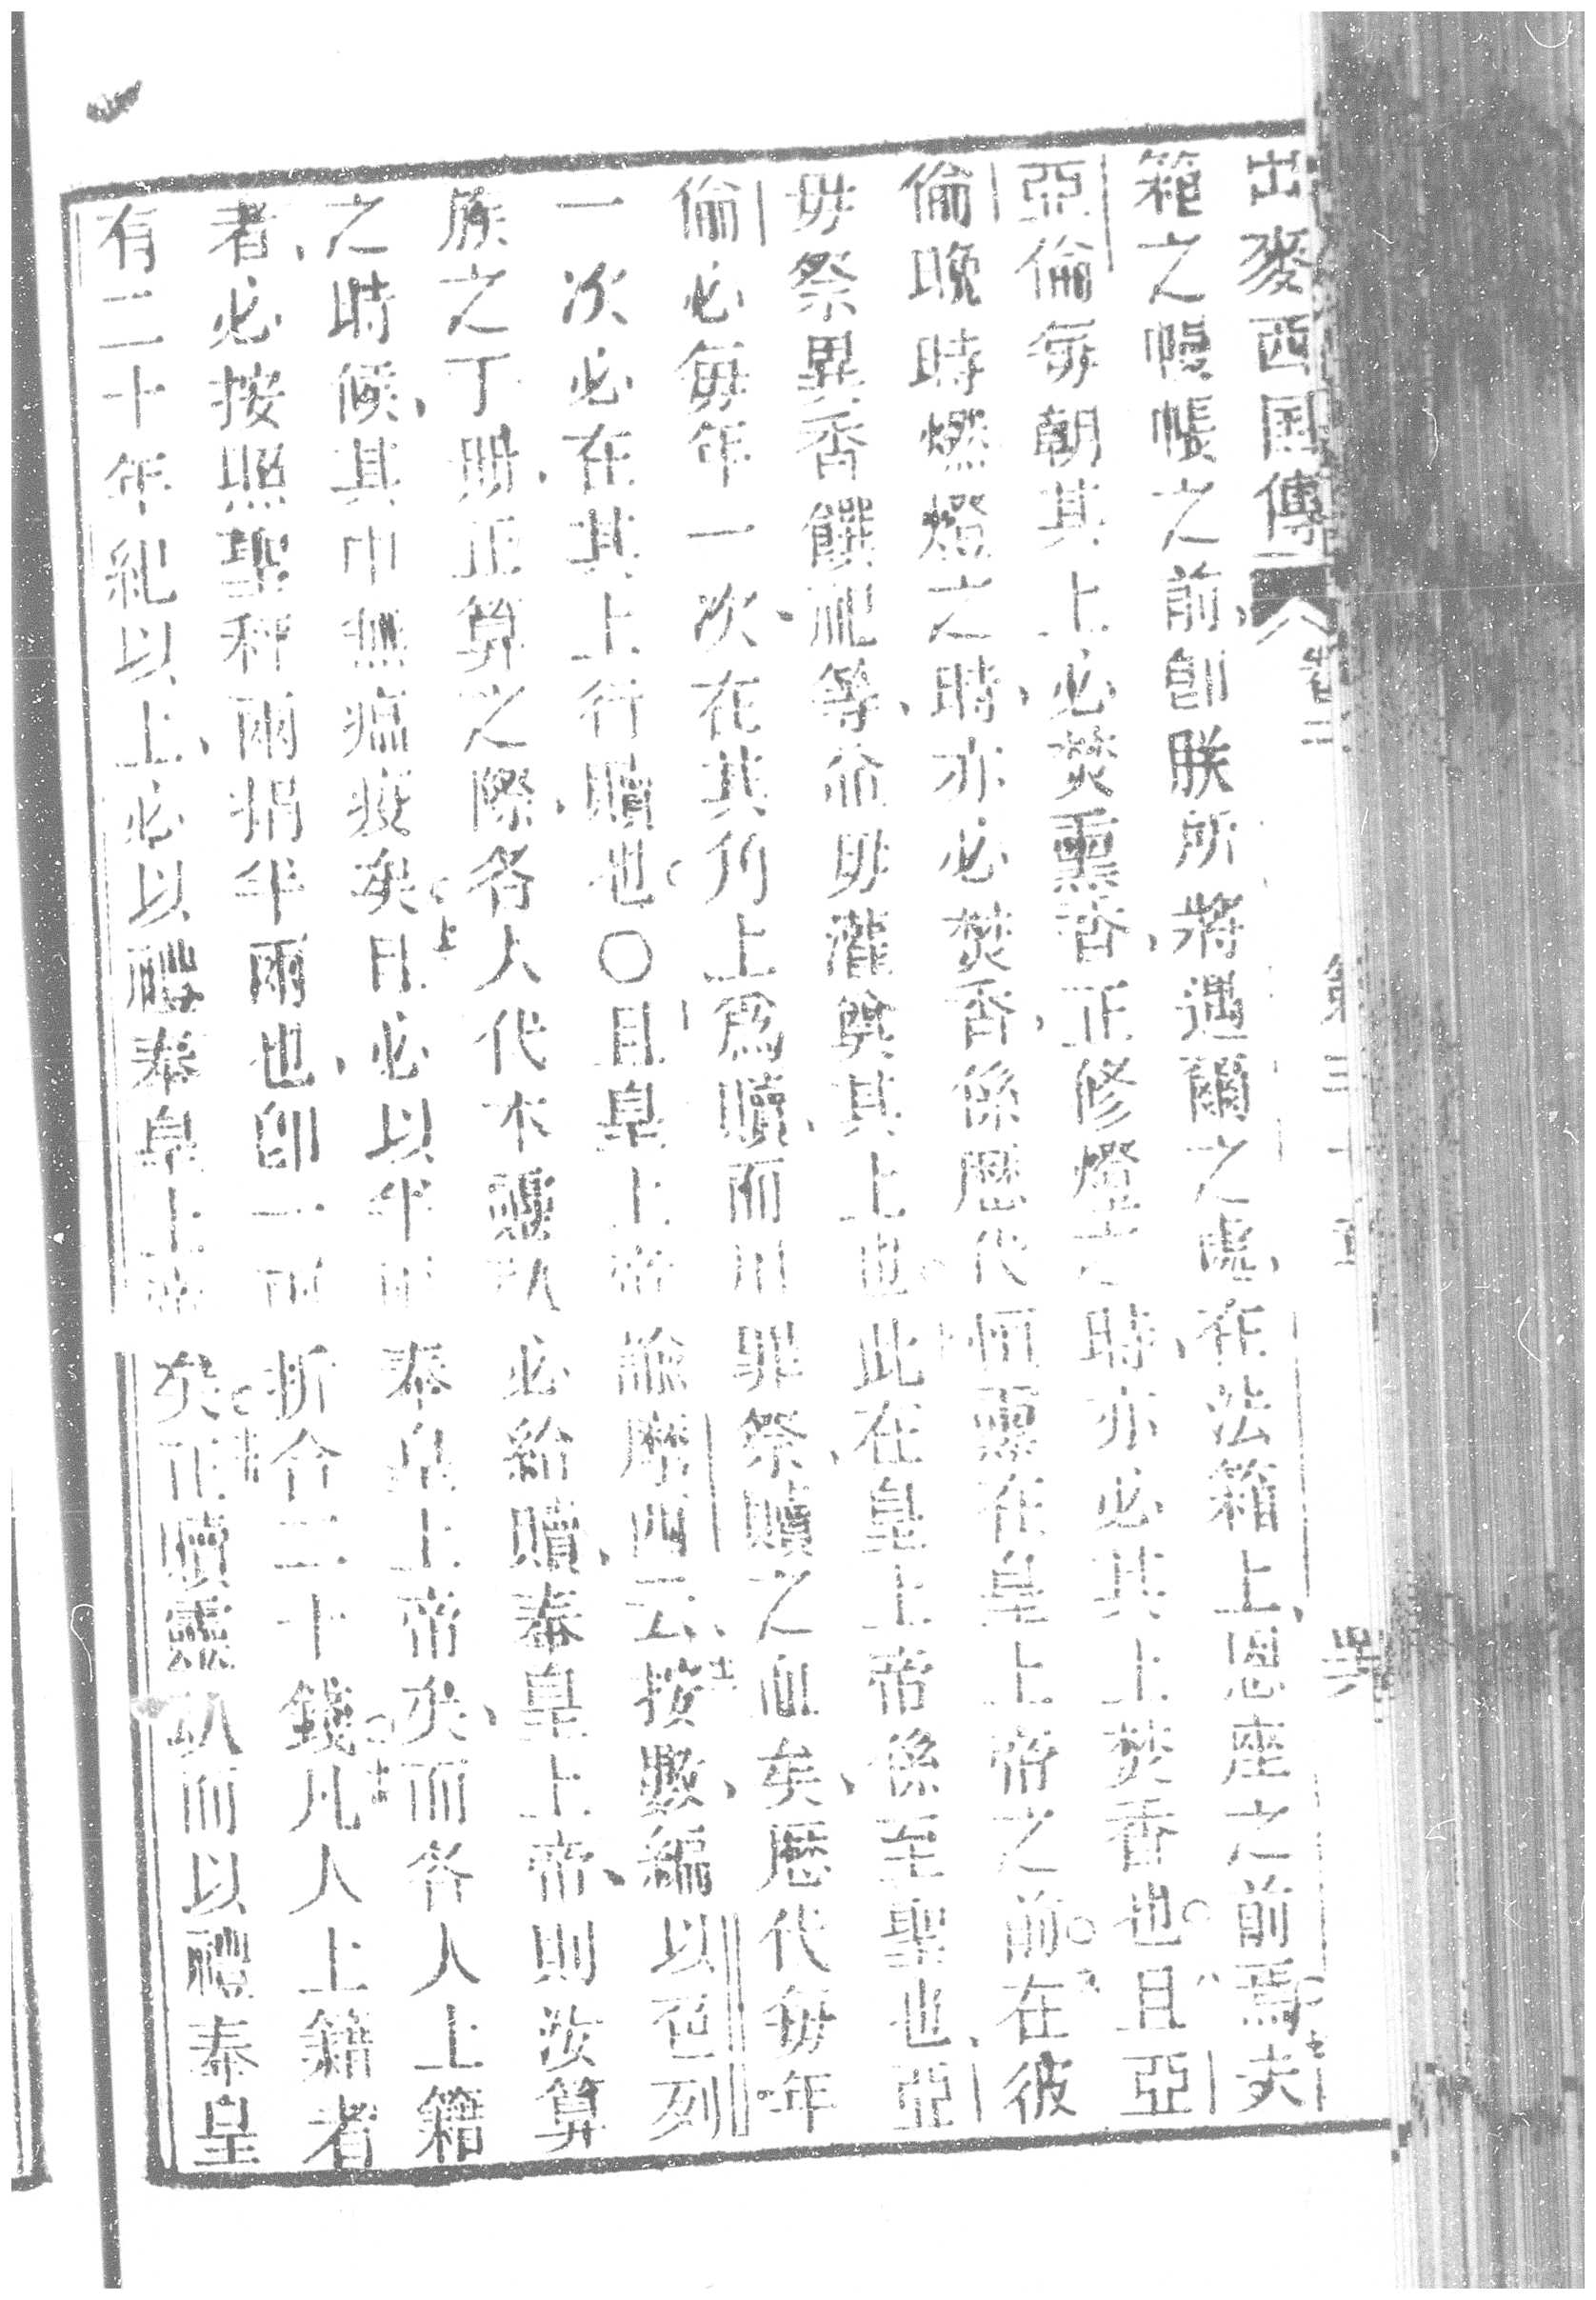 出麥西国傳 卷二 第三十章
箱之幔帳之前、卽朕所將遇爾之處、在法箱上、恩座之前焉、夫
亞倫每朝其上必焚熏香、正修燈之時、亦必其上焚香也。且亞
倫晚時燃燈之時、亦必焚香、係歷代恒熏在皇上帝之前。在彼
毋祭異香饌祀等、而毋灌奠其上也。此在皇上帝係至聖也、亞
倫必每年一次、在其角上爲贖、而用罪祭贖之血矣、歷代每年
一次必在其上行贖也。〇且皇上帝諭摩西云、按數編以色列
族之丁册、正算之際、各人代本靈㐲必給贖奉皇上帝、則汝算
之時候、其中無瘟疫矣。必以半兩奉皇上帝矣、而各人上籍
者、必按照聖秤兩捐半兩也、卽一兩折合二十錢。凡人上籍者
有二十年紀以上、必以禮奉皇上帝矣。正贖靈㐲而以禮奉皇